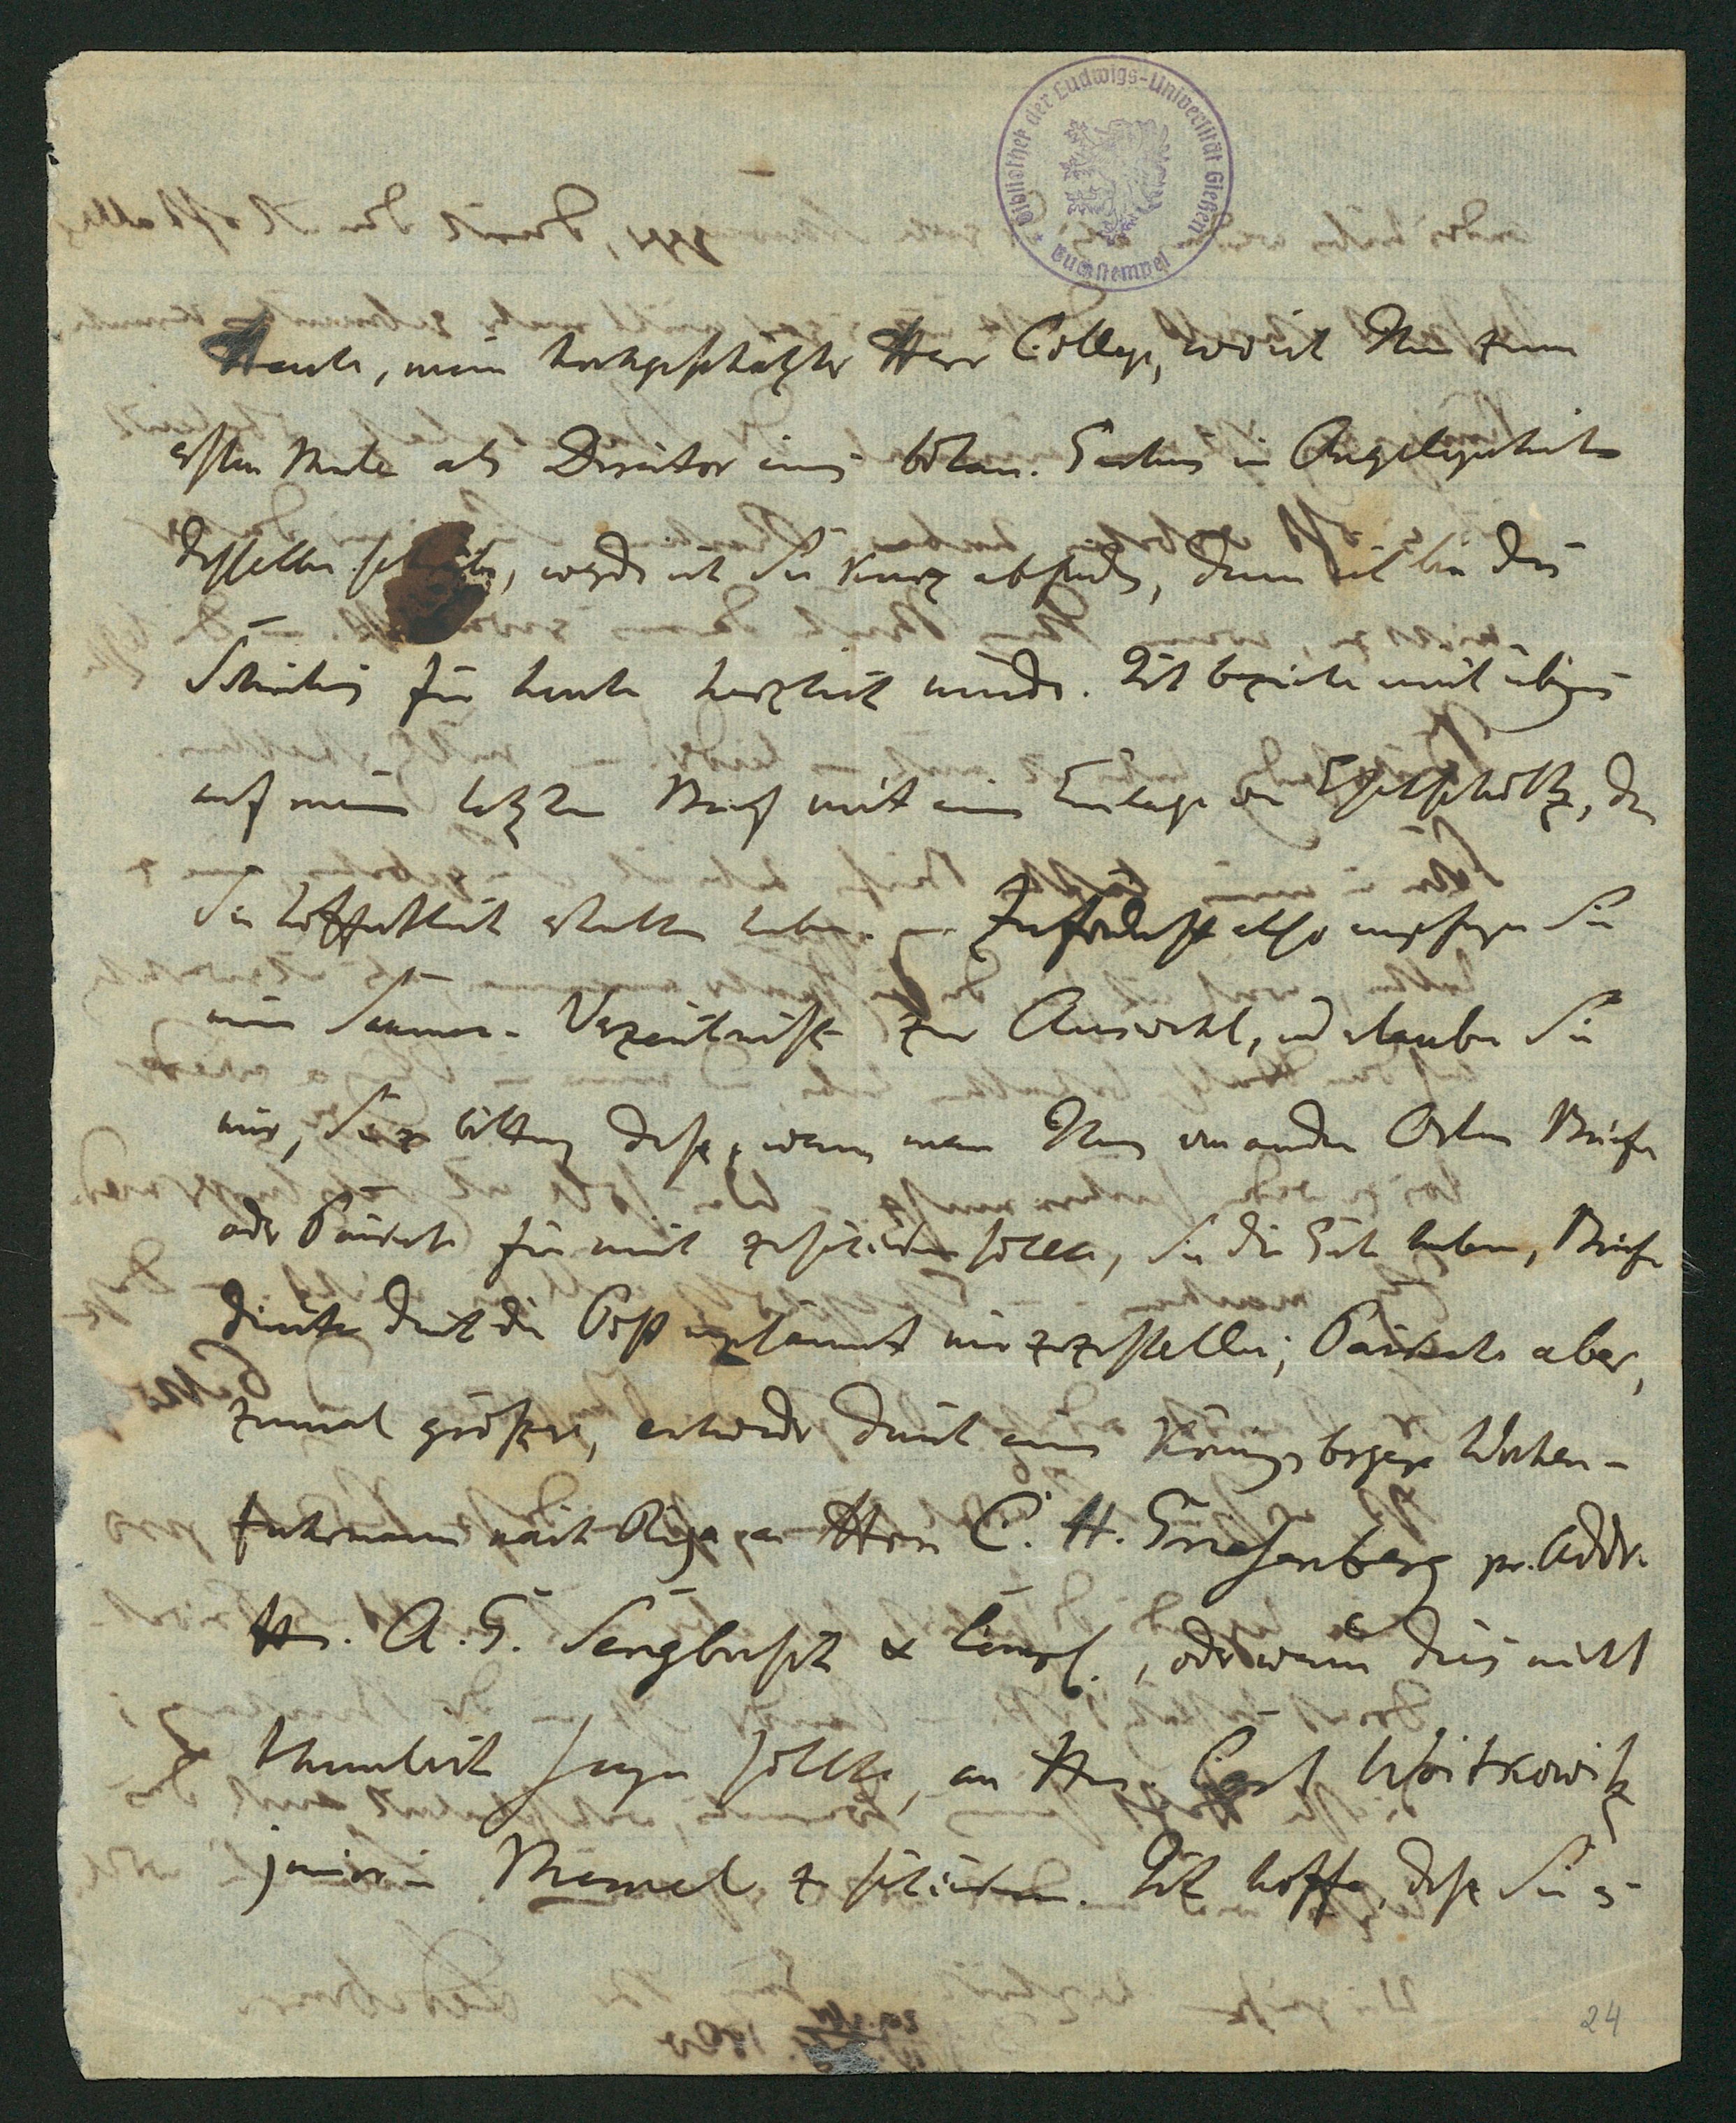 Bibliothek der Ludwigs-Universität Gießen
Buchstempel
Heute, mein hochgeschätzter Herr College, wo ich Ihnen zum
ersten Male als Director eines botan. Gartens in Angelegenheiten
desselben schreibe, werde ich Sie kurz abfinden, denn ich bin des
Schreibens für heute herzlich müde. Ich beziehe mich übrigens
auf meinen letzten Brief mit einer Einlage von Eschscholtz, den
Sie hoffentlich erhalten haben. – Zuförderst also empfangen Sie
mein Saamen-Verzeichniß zur Auswahl, und erlauben Sie
mir, Sie zu bitten, daß, wenn man Ihnen von andern Orten Briefe
oder Päckete für mich zuschicken sollte, Sie die Güte haben, Briefe
direkte durch die Post mir zuzustellen; Päckete aber,
zumal größere, entweder durch einen Königsberger Wochen-
fuhrmann nach Riga an Herrn C. H. Grassenberg pr. Addr.
Hr. A. G. Sengbusch & Comp., oder wenn dies nicht
thunlich seyn sollte, an Hrn. Carl Woitkowitz
junior in Memel zu schicken. Ich hoffe, daß Sie es
24